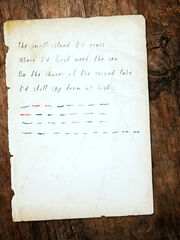 The small island I'd cross
Where I'd first meet the sea
On the shores of the second lake
I'd still spy from up high